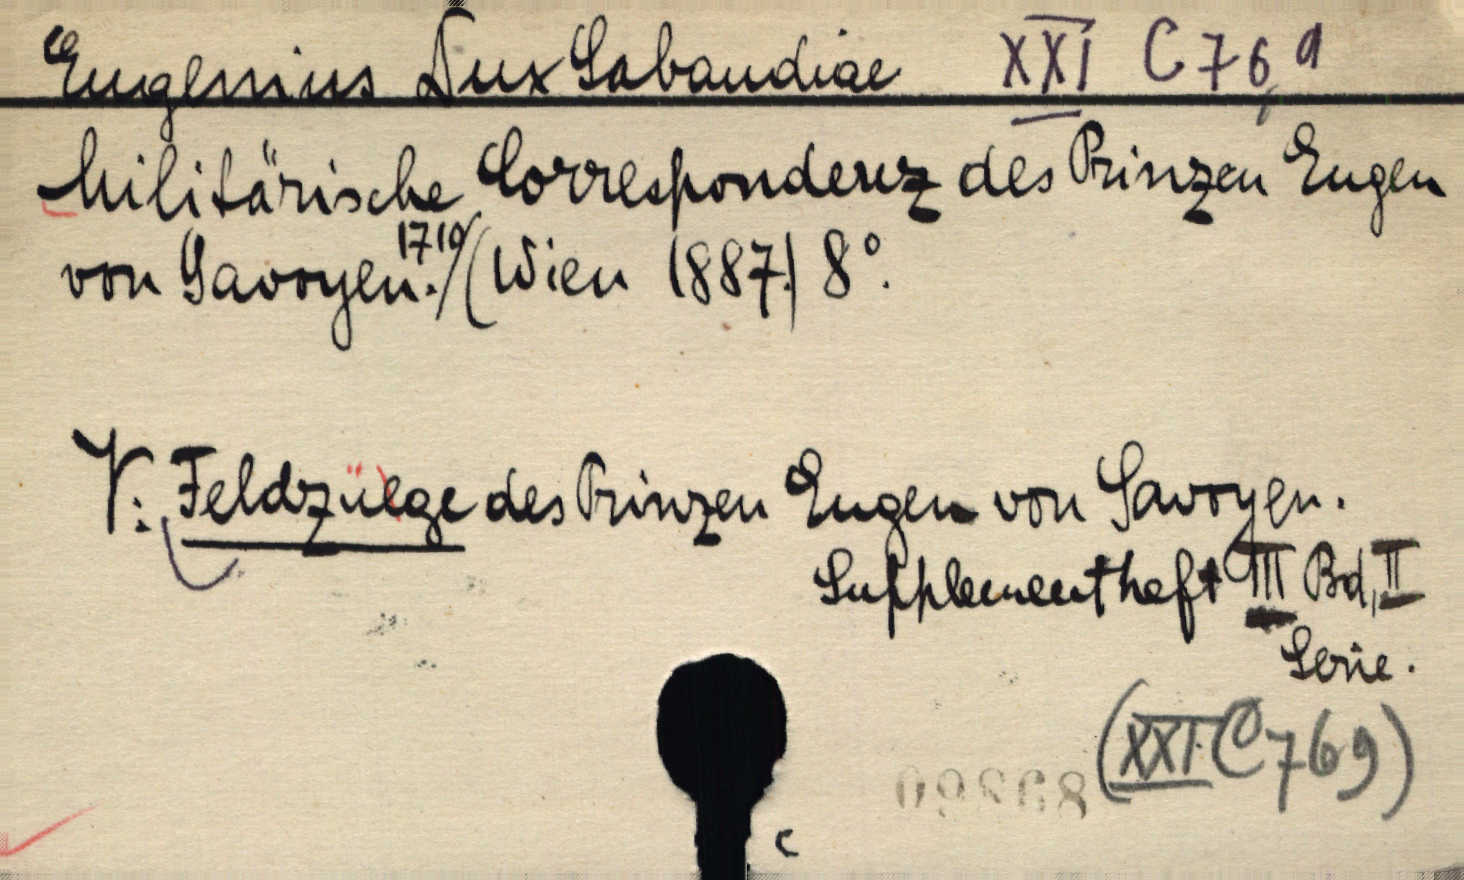 Eugenius Dux Sabaudiae XXI C 769
Militärische Correspondenz des Prinzen Eugen
von Savoyen. 1710 / (Wien 1887.) 8°.
V: Feldzüege des Prinzen Eugen von Savoyen.
Supplementheft III Bd, II
Serie.
(XXI. C 769)
c